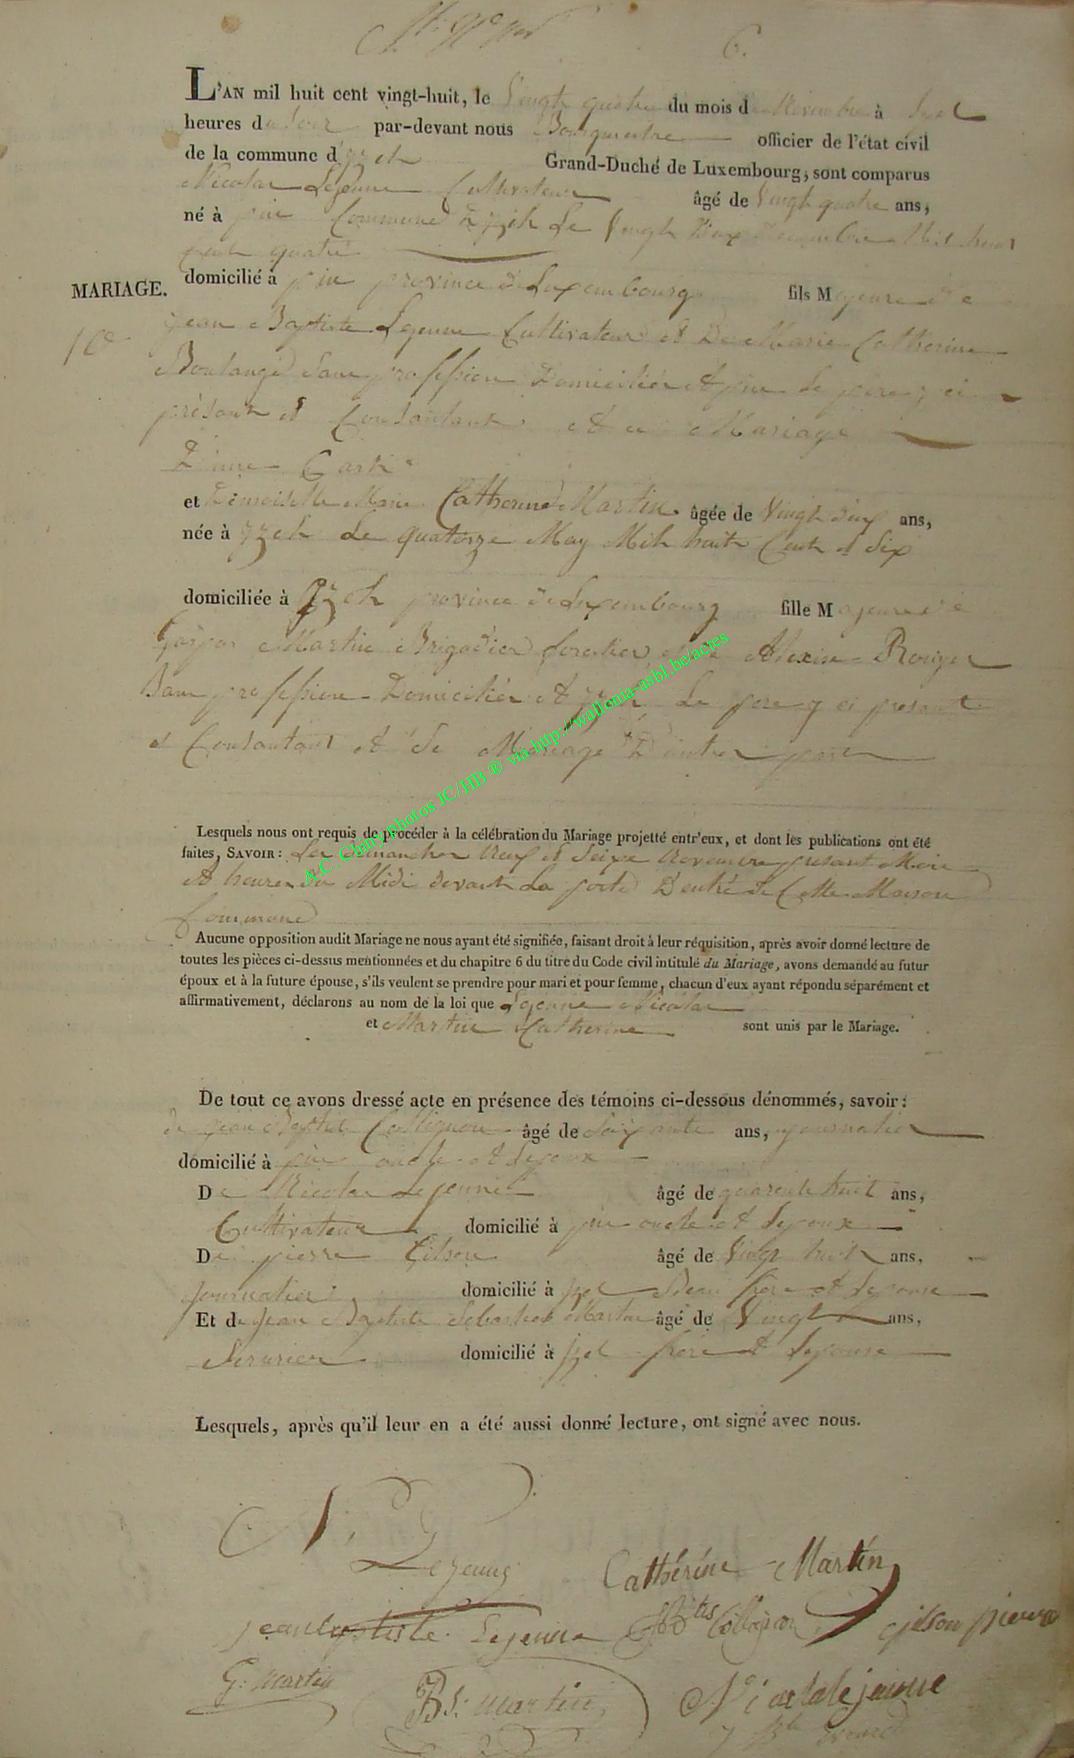 6.
L'AN mil huit cent vingt-huit, le Vingt quatre du mois de Novembre à Sept
heures du Soir par-devant nous Bourgmestre officier de l'état civil
de la commune d'yzel Grand-Duché de Luxembourg, sont comparus
Nicolas Lejeune Cultivateur âgé de Vingt quatre ans,
né à pin Commune D'yzel Le Vingt Deux Mil huit
cent quatre
MARIAGE. domicilié à pin province de Luxembourg fils Majeure de
10e jean Baptiste Lejeune Cultivateur et De Marie Catherine
Boulangé Sans profession Domiciliés A pin Le pere y ci
présant et Consantant A ce Mariage
D'une Part
et Demoiselle Marie Catherine Martin âgée de Vingt deux ans,
née à yzel Le quatorze May Mil huit Cent et Six
domiciliée à Yzel province de Luxembourg fille Majeure de
Gaspar Martin Brigadier forestier et de Rouyer
Sans profession Domiciliés A yzel Le pere y ci présant
et Consantant A Se Mariage D'autre part
Lesquels nous ont requis de procéder à la célébration du Mariage projetté entr'eux, et dont les publications ont été
faites, SAVOIR: Les dimanches Neuf et Seize Novembre présant Mois
A heures du Midi devant La porte D'entrée de Cette Maison
Commune
Aucune opposition audit Mariage ne nous ayant été signifiée, faisant droit à leur réquisition, après avoir donné lecture de
toutes les pièces ci-dessus mentionnées et du chapitre 6 du titre du Code civil intitulé du Mariage, avons demandé au futur
époux et à la future épouse, s'ils veulent se prendre pour mari et pour femme, chacun d'eux ayant répondu séparément et
affirmativement, déclarons au nom de la loi que Lejeune Nicolas
et Martin Catherine sont unis par le Mariage.
De tout ce avons dressé acte en présence des témoins ci-dessous dénommés, savoir:
de jean Baptiste Collignon âgé de Soixante ans, journalier
domicilié à pin oncle A Lepoux
De Nicolas Lejeune âgé de quarente huit ans,
Cultivateur domicilié à pin oncle A Lepoux
De pierre Gilson âgé de Vingt huit ans,
journalier domicilié à Beau frere A Lepouse
Et de jean Baptiste Sebastien Martin âgé de Vingt ans,
Serurier domicilié à frere A Lepouse
Lesquels, après qu'il leur en a été aussi donné lecture, ont signé avec nous.
N. Lejeune
Catherine Martin
jeanbaptiste Lejeune Collignon gilson pierre
G: Martin Bt: martin Nicolalejeune
A.C. Chiny Photos IC/HB ® via http://wallonia-asbl.be/actes